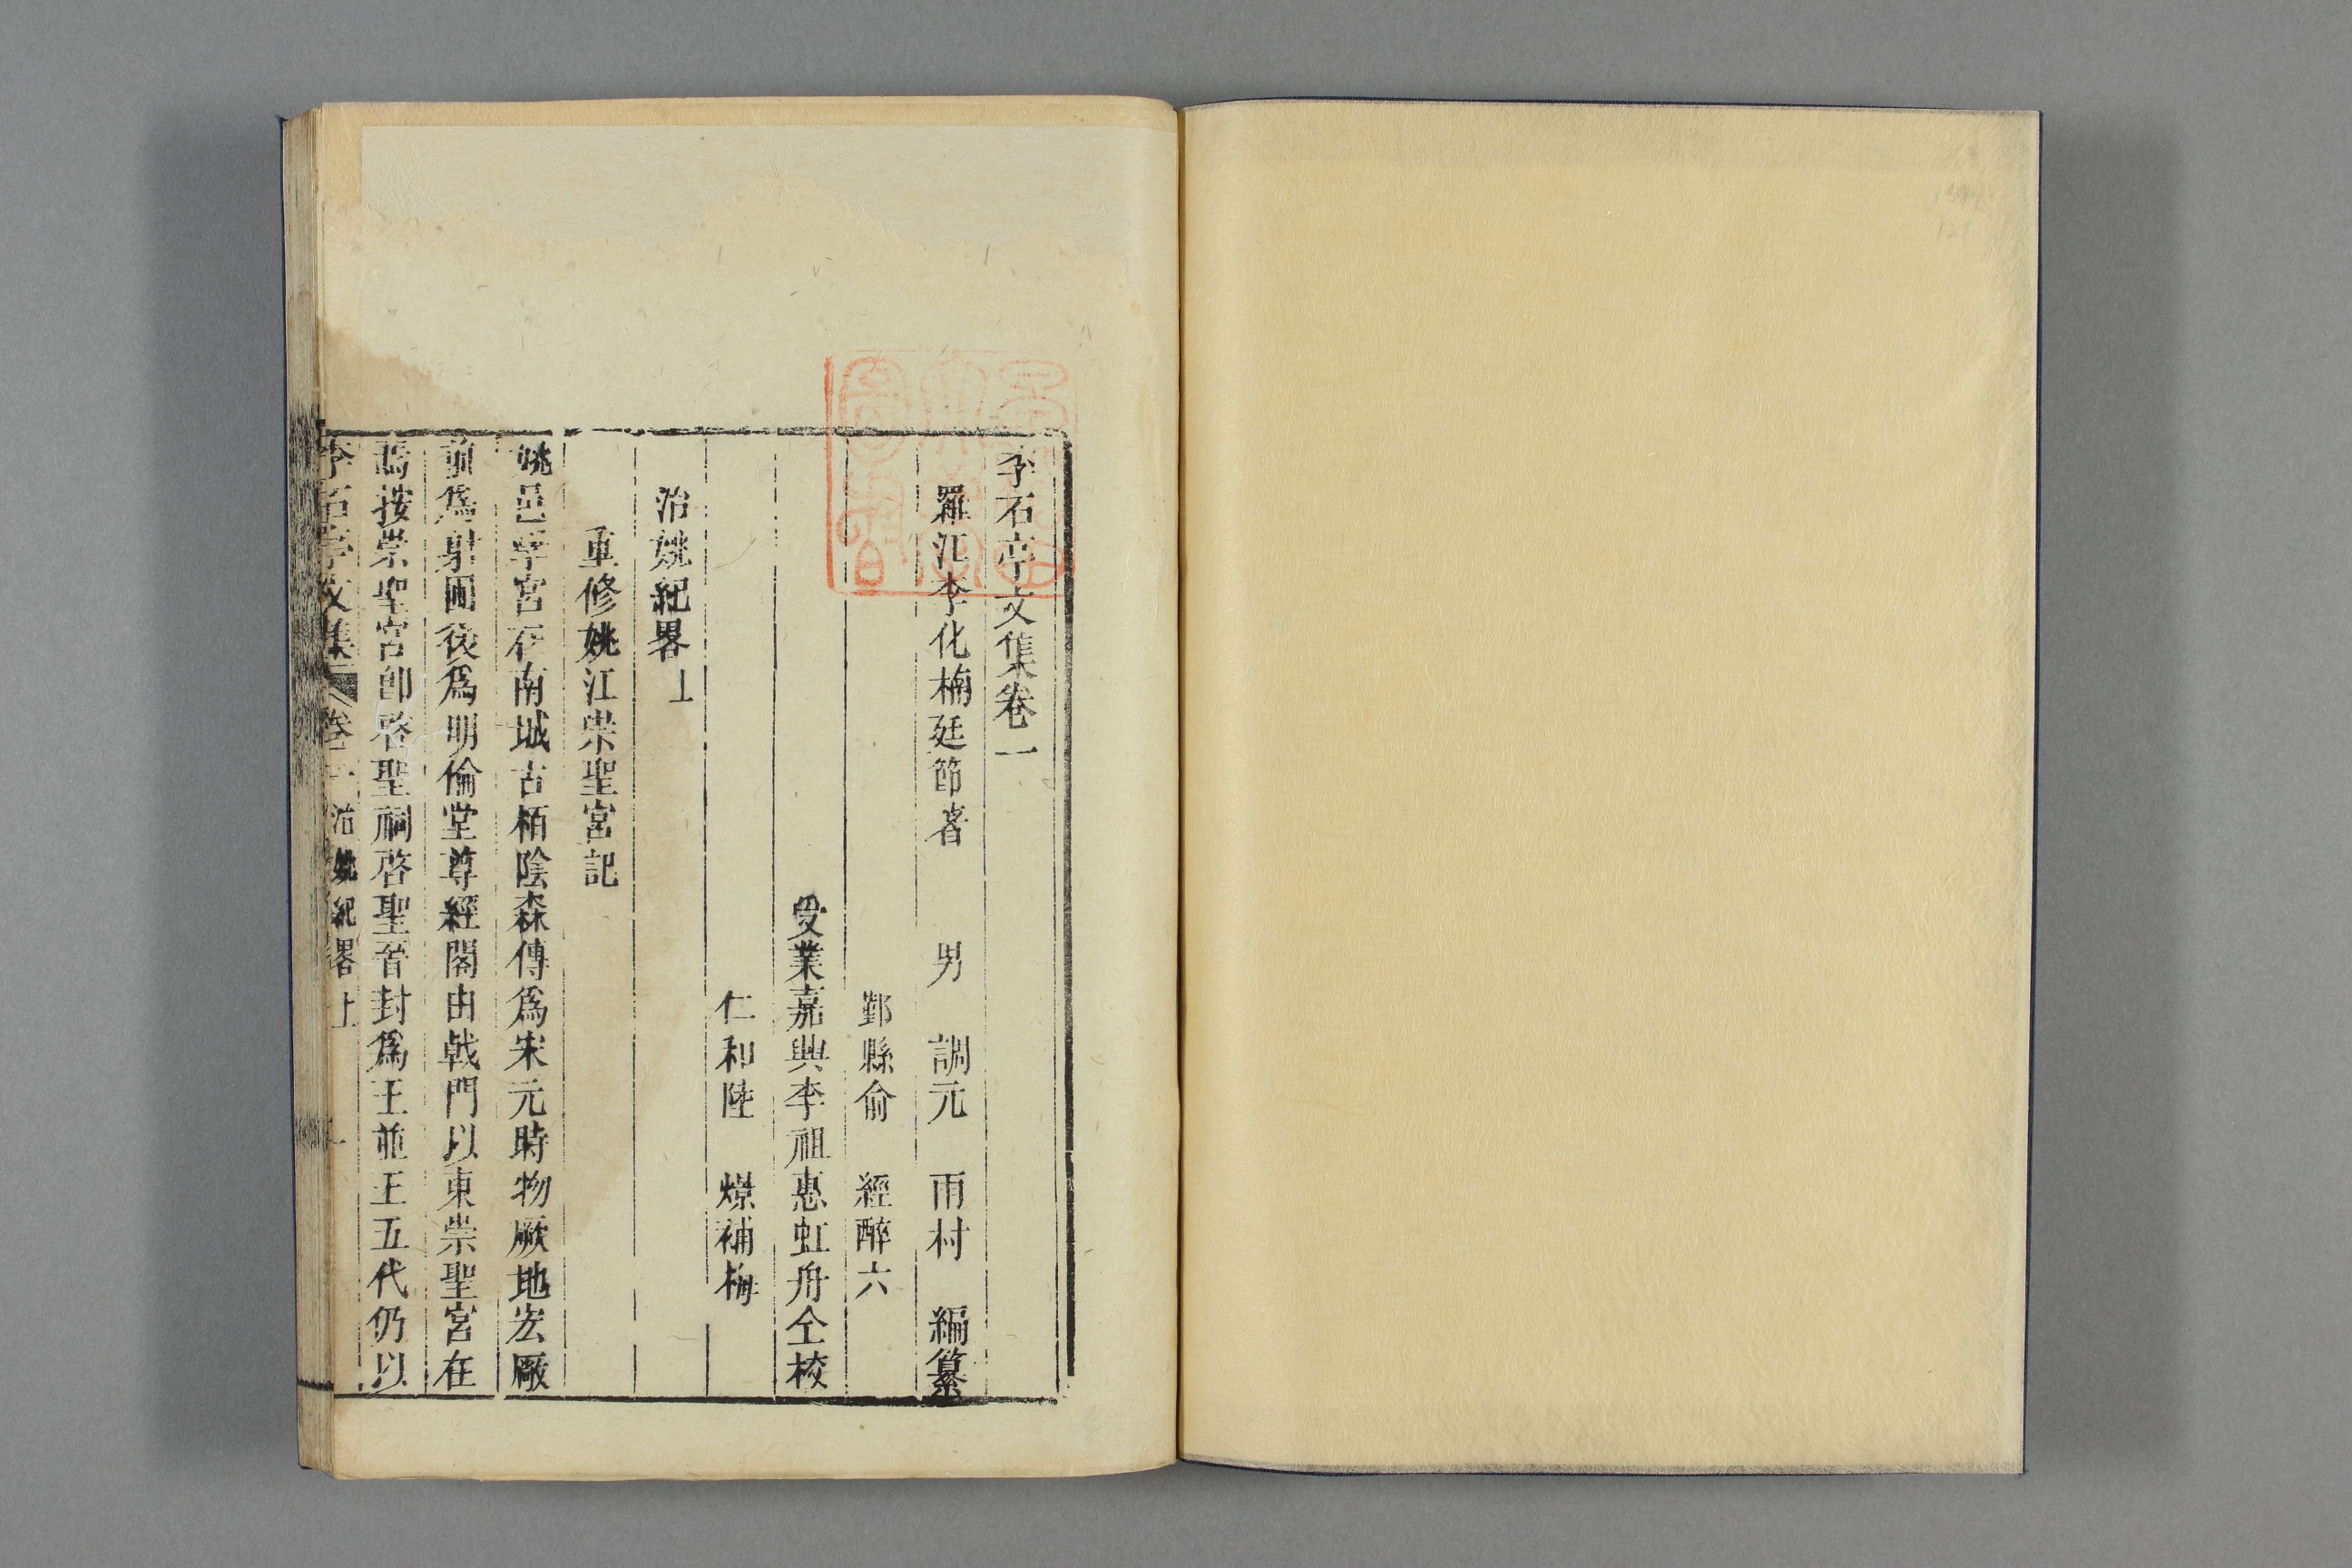 李石亭文集卷一
羅江李化楠廷節著 男 調元 雨村 編纂
鄞縣俞 經醉六
受業嘉興李祖惠虹舟仝校
仁和陸 燝補梅
治姚紀畧上
重修姚江崇聖宮記
姚邑學宮在南城古栢陰森傳爲宋元時物厥地宏厰
前爲射圃後爲明倫堂尊經閣由戟門以東崇聖宮在
焉按崇聖宮卽啓聖祠啓聖晉封爲王並王五代仍以
李石亭文集 卷一 治姚紀畧上 一